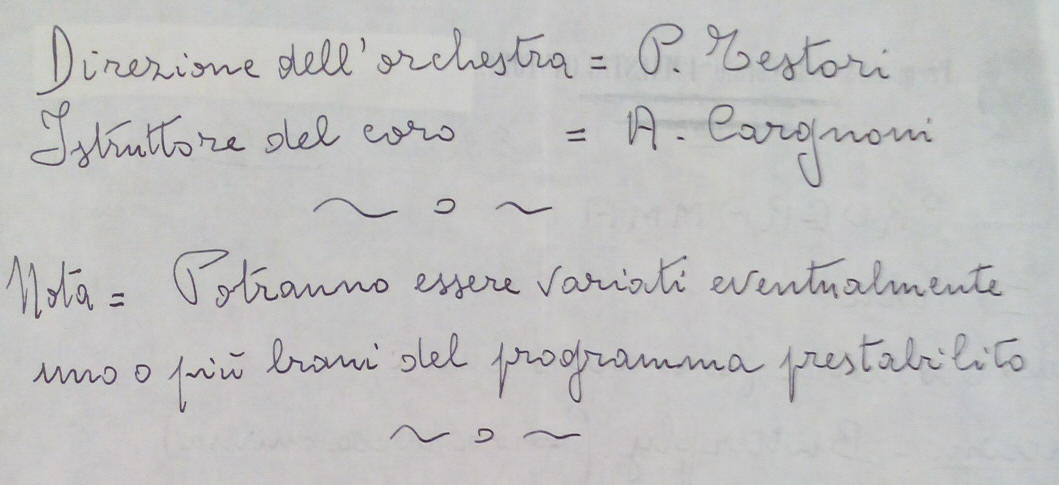 Direzione dell'orchestra = P. Testori
Istruttore del coro = A. Cargnoni
~ o ~
Nota = Potranno essere variati eventualmente
uno o più brani del programma prestabilito
~ o ~